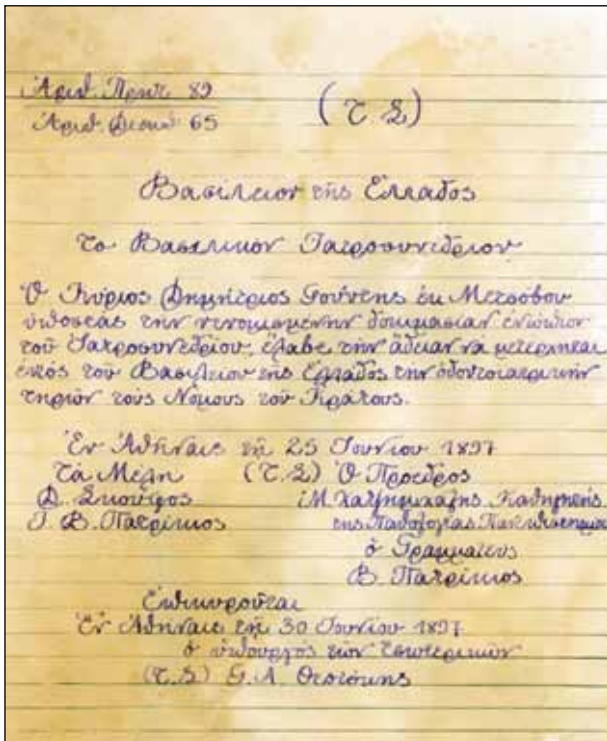 Ἀριθ. Πρωτ 89
Ἀριθ. Διεκπ 65
(Τ Σ)
Βασίλειον τῆς Ἑλλάδος
Το Βασιλικὸν Ἰατροσυνέδριον
Ὁ Κύριος Δημήτριος Γούνης ἐκ Μετσόβου
ὑποστὰς την νενομισμένην δοκιμασίαν ἐνώπιον
τοῦ Ἰατροσυνεδρίου, ἔλαβε την ἄδειαν να μετέρχηται
ἐντός του Βασιλείου της Ἑλλάδος την ὀδοντοιατρικὴν
τηρῶν τοὺς Νόμους τοῦ Κράτους.
Ἐν Ἀθήναις τῇ 25 Ἰουνίου 1897
Τα Μέλη (Τ.Σ) Ὁ Πρόεδρος
Δ. Σκούφος Μ. Χατζημιχαλης Καθηγητής
Γ. Β. Πατρίκιος της Παθολογίας
ὁ Γραμματεὺς
Β. Πατρίκιος
Ἐπικυροῦται
Ἐν Ἀθήναις τῇ 30 Ἰουνίου 1897
ὁ ὑπουργὸς τῶν Ἐσωτερικῶν
(Τ.Σ) Γ. Α. Θεοτόκης